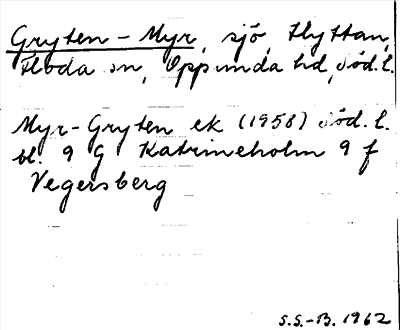 Gryten - Myr, sjö, Hyttan,
Floda sn, Oppunda hd, Söd.l.
Myr-Gryten ek (1958) Söd.l.
bl. 9 G Katrineholm 9 f
Vegersberg
S.S.-B. 1962